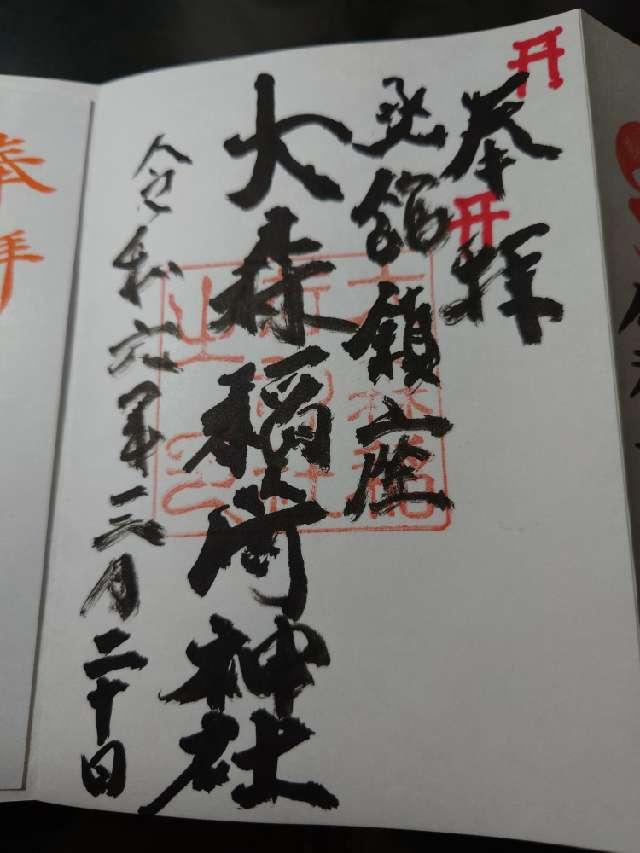 奉拝
函館鎮座
大森稲荷神社
令和六年三月二十日
奉拝